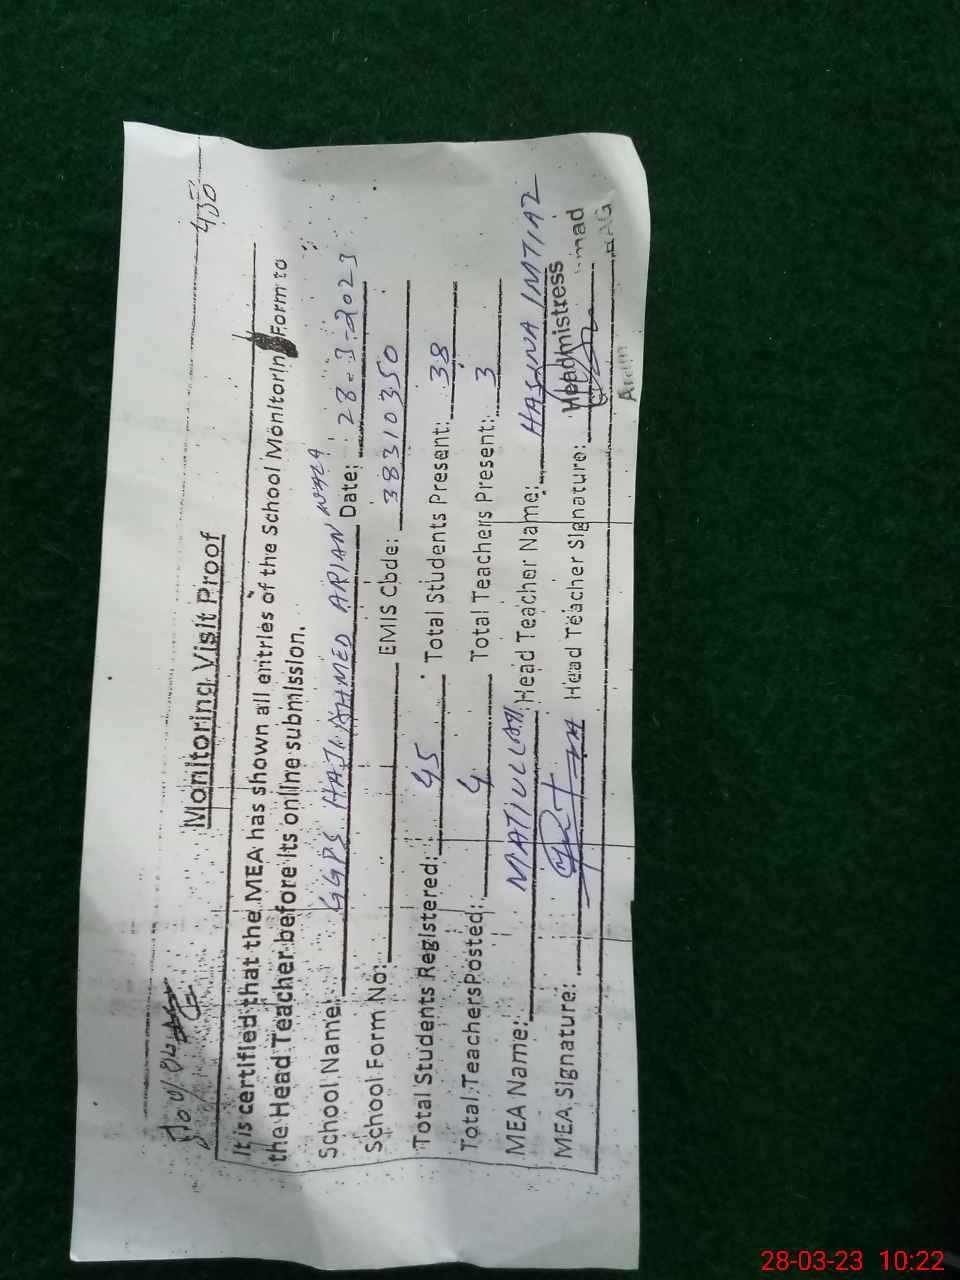 450
Monitoring Visit Proof
It is certified that the MEA has shown all entries of the School Monitorin Form to
the Head Teacher before its online submission.
School Name: GGPS HAJI AHMED ARIAN WALA Date: 28-3-2023
School Form No: EMIS Code: 38310350
Total Students Registered: 45 Total Students Present: 38
Total Teachers Posted: 4 Total Teachers Present: 3
MEA Name: MATIULLAH Head Teacher Name: HASINA IMTIAZ
MEA Signature: Head Teacher Signature: Headmistress
28-03-23 10:22